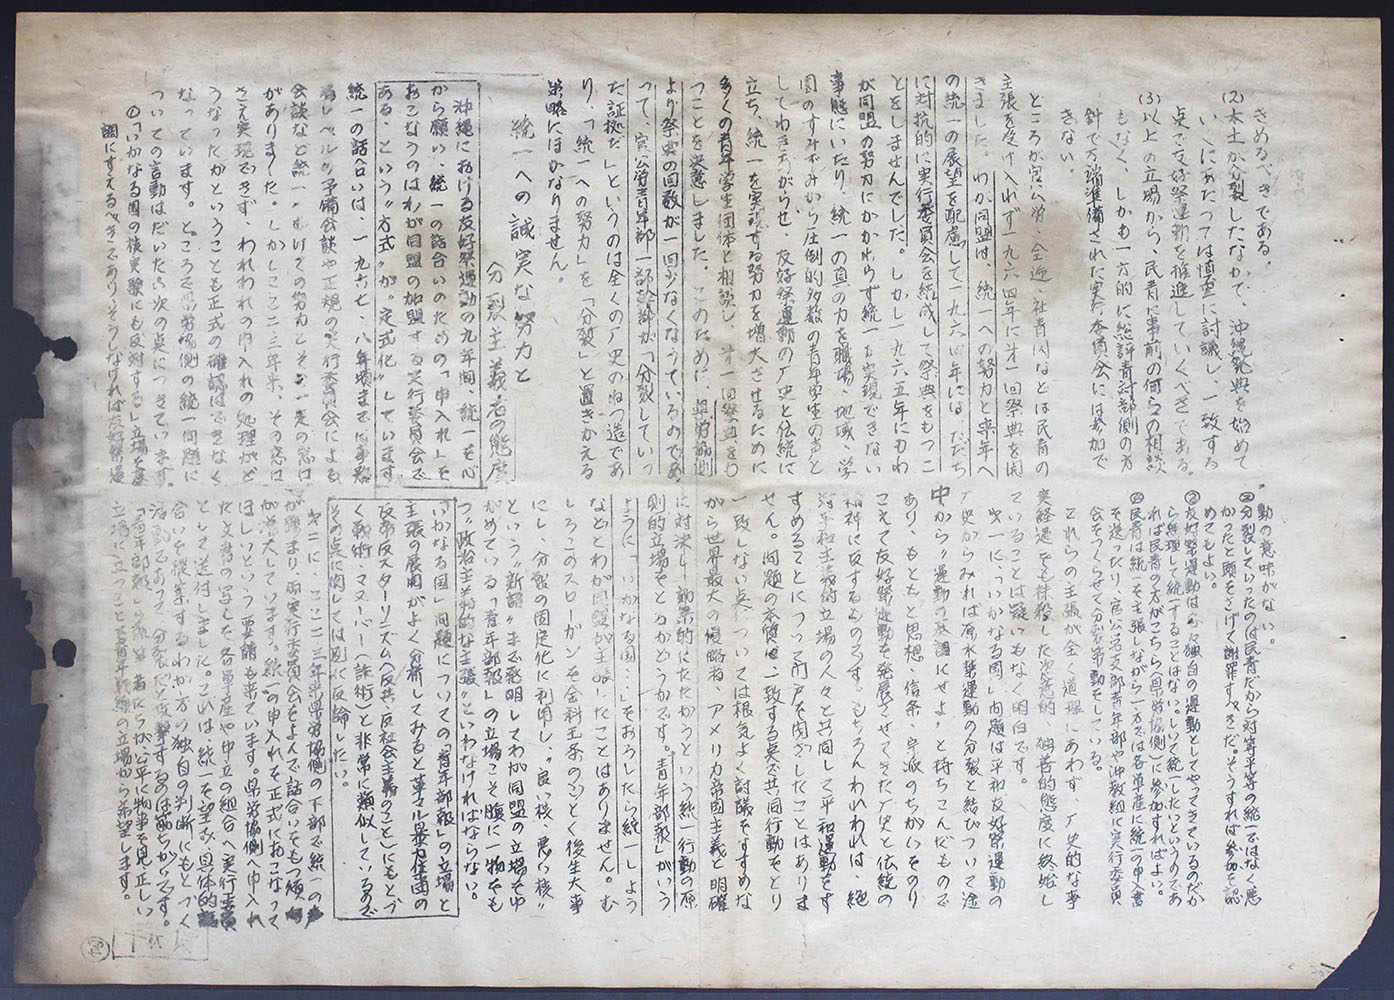 きめるべきである。
(2)本土が分裂したなかで、沖縄祭典を始めて
いくにあたっては慎重に討議し、一致する
点で友好祭運動を推進していくべきである。
(3)以上の立場から、民青に事前の何らの相談
もなく、しかも一方的に総評青対部側の方
針で万端準備された実行委員会には参加で
きない。
ところが官公労・全逓・社青同などは民青の
主張を受け入れず一九六四年に第一回祭典を開
きました。わが同盟は、統一への努力と来年へ
の統一の展望を配慮して一九六四年には、ただち
に対抗的に実行委員会を結成して祭典をもつこ
とをしませんでした。しかし一九六五年にもわ
が同盟の努力にかかわらず統一が実現できない
事態にいたり、統一の真の力を職場、地域、学
園のすみずみから圧倒的多数の青年学生のもと
してわきあがらせ、友好祭運動の歴史と伝統に
立ち、統一を実現する努力を増大させるために
多くの青年学生団体と相談し、第一回祭典をも
つことを決意しました。このために、県労協側
より祭典の回数が一回少なくなっているのであ
って、官公労青年部一部幹部が「分裂していっ
た証拠だ」というのは全くの歴史のねつ造であ
り、「統一への努力」を「分裂」と置きかえる
策略にほかなりません。
統一への誠実な努力と
分裂主義者の態度
沖縄における友好祭運動の九年間、統一を心
から願い、統一の話合いのための「申入れ」を
おこなうのはわが同盟の加盟する実行委員会で
ある、という〃方式〃が〃定式化〃しています
統一の話合いは、一九六七、八年頃までは事務
局レベルの予備会談や正規の実行委員会による
会談など統一へむけての努力とその一定の窓口
がありました。しかしここ二三年来、その窓口
さえ実現できず、われわれの申入れの処理がど
うなったかということも正式の確認はできなく
なっています。ところで県労協側の統一問題に
ついての言動はだいたい次の点につきています。
①「いかなる国の核実験にも反対する」立場を基
調にすえるべきでありそうしなければ友好祭運
動の意味がない。
②分裂していったのは民青だから対等平等の統一ではなく悪
かったと頭をさげて謝罪すべきだ。そうすれば参加を認
めてもよい。
③友好祭運動は各々独自の運動としてやってきているのだか
ら無理して統一することはない。しいて統一したいというのであ
れば民青の方がこちら(県労協側)に参加すればよい。
④民青は統一を主張しながら一方では各単産に統一の申入書
を送ったり、官公労支部青年部や沖教組に実行委員
会をつくらせて分裂策動をしている。
これらの主張が全く道理にあわず、歴史的な事
実経過をも抹殺した決意的 独善的態度に終始し
ていることは疑いもなく明白です。
第一に、「いかなる国」問題は平和友好祭運動の
歴史からみれば原水禁運動の分裂と結びついて途
中から〃運動の基調にせよ〃と持ちこんだもので
あり、もともと思想、信条、宗派のちがいをのり
こえて友好祭運動を発展させてきた歴史と伝統の
精神に反するものです。もちろんわれわれは、絶
対平和主義的立場の人々と共同して平和運動をす
すめることについて門戸を閉ざしたことはありま
せん。問題の本質は、一致する点で共同行動をとり
一致しない点については根気よく討議をすすめな
がら世界最大の侵略者、アメリカ帝国主義と明確
に対決し効果的にたたかうという統一行動の原
則的立場をとるかどうかです。「青年部報」がいう
ように「いかなる国……」をおろしたら統一しよう
などとわが同盟が主張したことはありません。む
しろこのスローガンを金科玉条のごとく後生大事
にし、分裂の固定化に利用し、〃良い核、悪い核〃
という〃新語〃まで発明してわが同盟の立場を中
がめている「青年部報」の立場こそ腹に一物をも
つ〃政治主義的な主張〃といわなければならない。
いかなる国 問題についての「青年部報」の立場と
主張の展開がよく分析してみると革マル暴力集団の
反帝反スターリニズム(反共・反社会主義のこと)にもとづ
く戦術・マヌーバー(詐術)と非常に類似しているので
その点に関しては別に反論したい。
第二に、ここ二三年来県労協側の下部で統一の声
が強まり、両実行委員会をよんで話合いをもつ傾向
が増大しています。統一の申入れを正式におこなって
ほしいという要請も来ています。県労協側へ申入れ
た文書の写しを各単産や中立の組合へ実行委員会
として送付しました。これは統一を望み具体的話
合いを提案するわが方の独自の判断にもとづく
活動であって、分裂だと攻撃するのは筋ちがいです。
「青年部報」の執筆者たちが公平に物事を見、正しい
立場に立つことを青年戦線の立場から希望します。